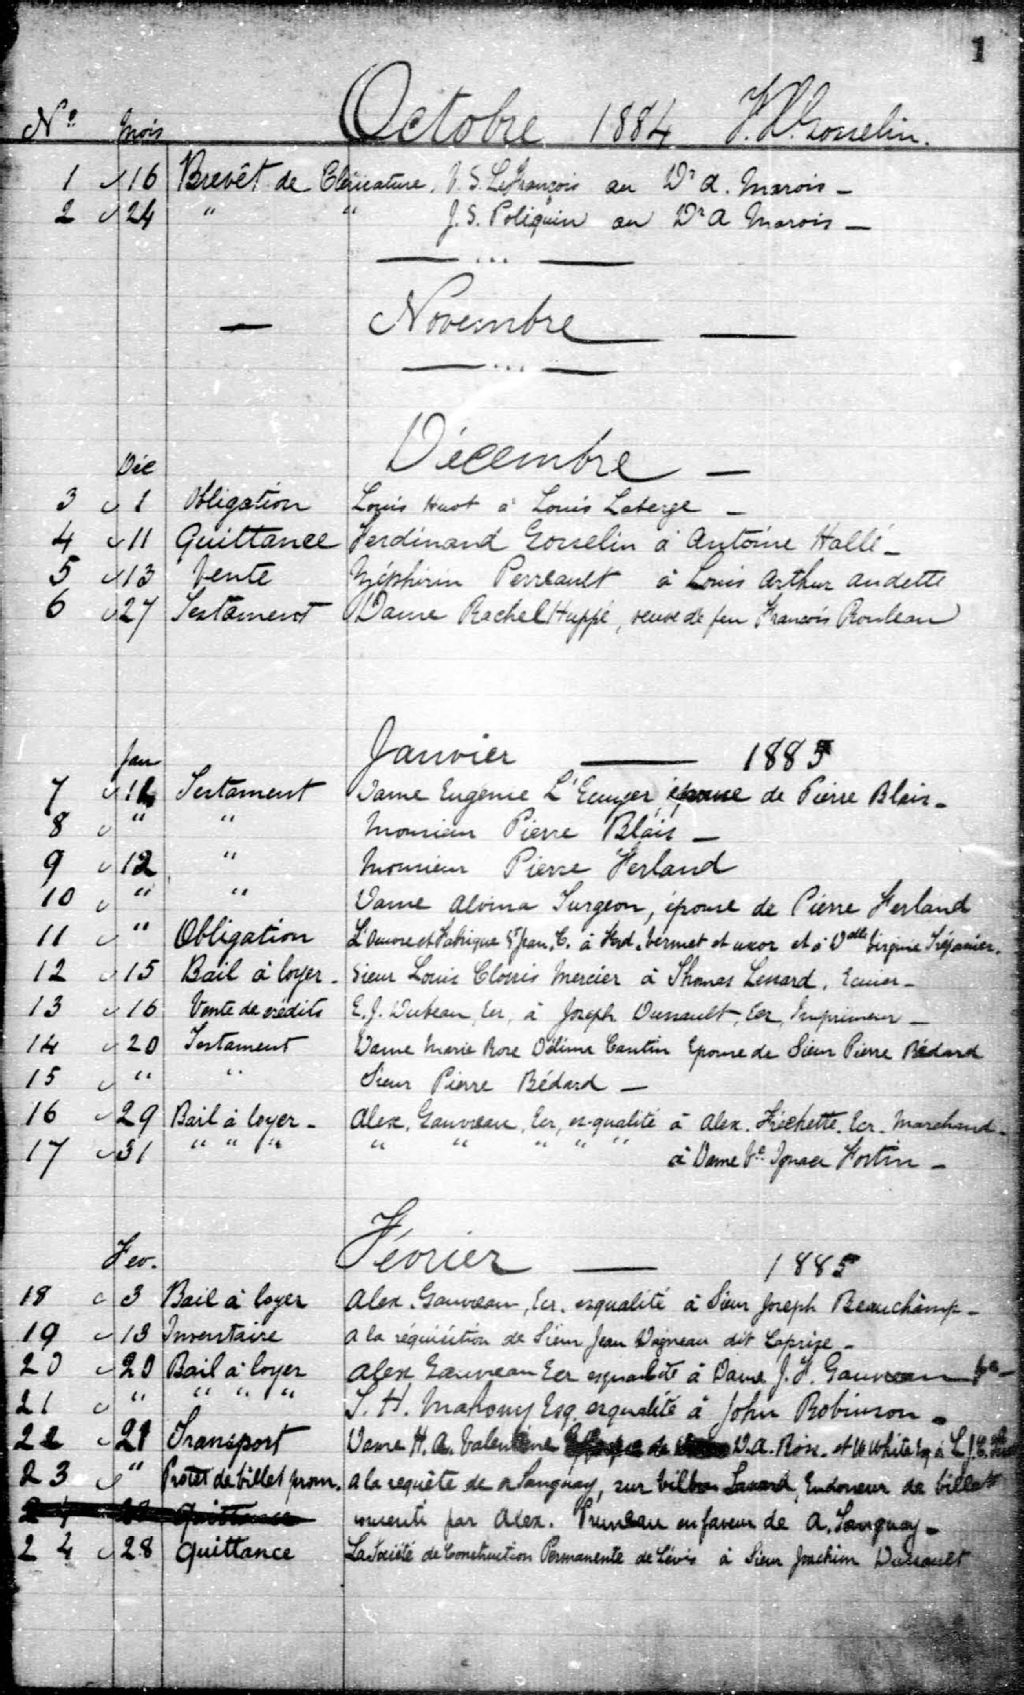 1
Nº Mois Octobre 1884 Gosselin.
1 16 Brevêt de Cléricature, J. S. LeFrançois au Dr A. Marois —
2 24 " " J. S. Poliquin au Dr A Marois —
— Novembre —
Décembre —
Déc
3 1 Obligation Louis Huot à Louis Laberge —
4 11 Quittance Ferdinand Gosselin à Antoine Hallé —
5 13 Vente Zéphirin Perreault à Louis Arthur Audette
6 27 Testament Dame Rachel Huppé, veuve de feu François Rouleau
Janvier — 1885
Jan
7 12 Testament Dame Eugénie L'Ecuyer, épouse de Pierre Blais —
8 " " Monsieur Pierre Blais —
9 12 " Monsieur Pierre Ferland
10 " " Dame Alvina Turgeon, épouse de Pierre Ferland
11 " Obligation L'Oeuvre et Fabrique St Jean C. à Ferd. Vermet et uxor et à Dlle Virginie Trépanier.
12 15 Bail à loyer - Sieur Louis Clovis Mercier à Thomas Lenard, Ecuier —
13 16 Vente de crédits E. J. Dubeau, Ecr, à Joseph Dussault, Ecr, Imprimeur —
14 20 Testament Dame Marie Rose Délima Cantin Epouse de Sieur Pierre Bédard
15 " " Sieur Pierre Bédard —
16 29 Bail à loyer - Alex. Gauvreau, Ecr, es-qualité à Alex. Fréchette, Ecr. Marchand -
17 31 " " " " " " " " à Dame Ve Ignace Fortin —
Février — 1885
Fev.
18 3 Bail à loyer Alex. Gauvreau, Ecr. esqualité à Sieur Joseph Beauchamp —
19 13 Inventaire A la réquisition de Sieur Jean Dagneau dit Laprise —
20 20 Bail à loyer Alex Gauvreau Ecr esqualité à Dame J. F. Gauvreau
21 " " " " T. H. Mahony Esq. esqualité à John Robinson —
22 21 Transport Dame H. A. Valentine D. A. Ross et W White Esq à L. J. C.
23 " Protêt de billet prom. A la requête de A Tanguay, sur Savard, Endosseur de billet
24 28 Quittance consenti par Alex. Pruneau en faveur de A. Tanguay —
24 28 Quittance La Société de Construction Permanente de Lévis à Sieur Joachim Dussault